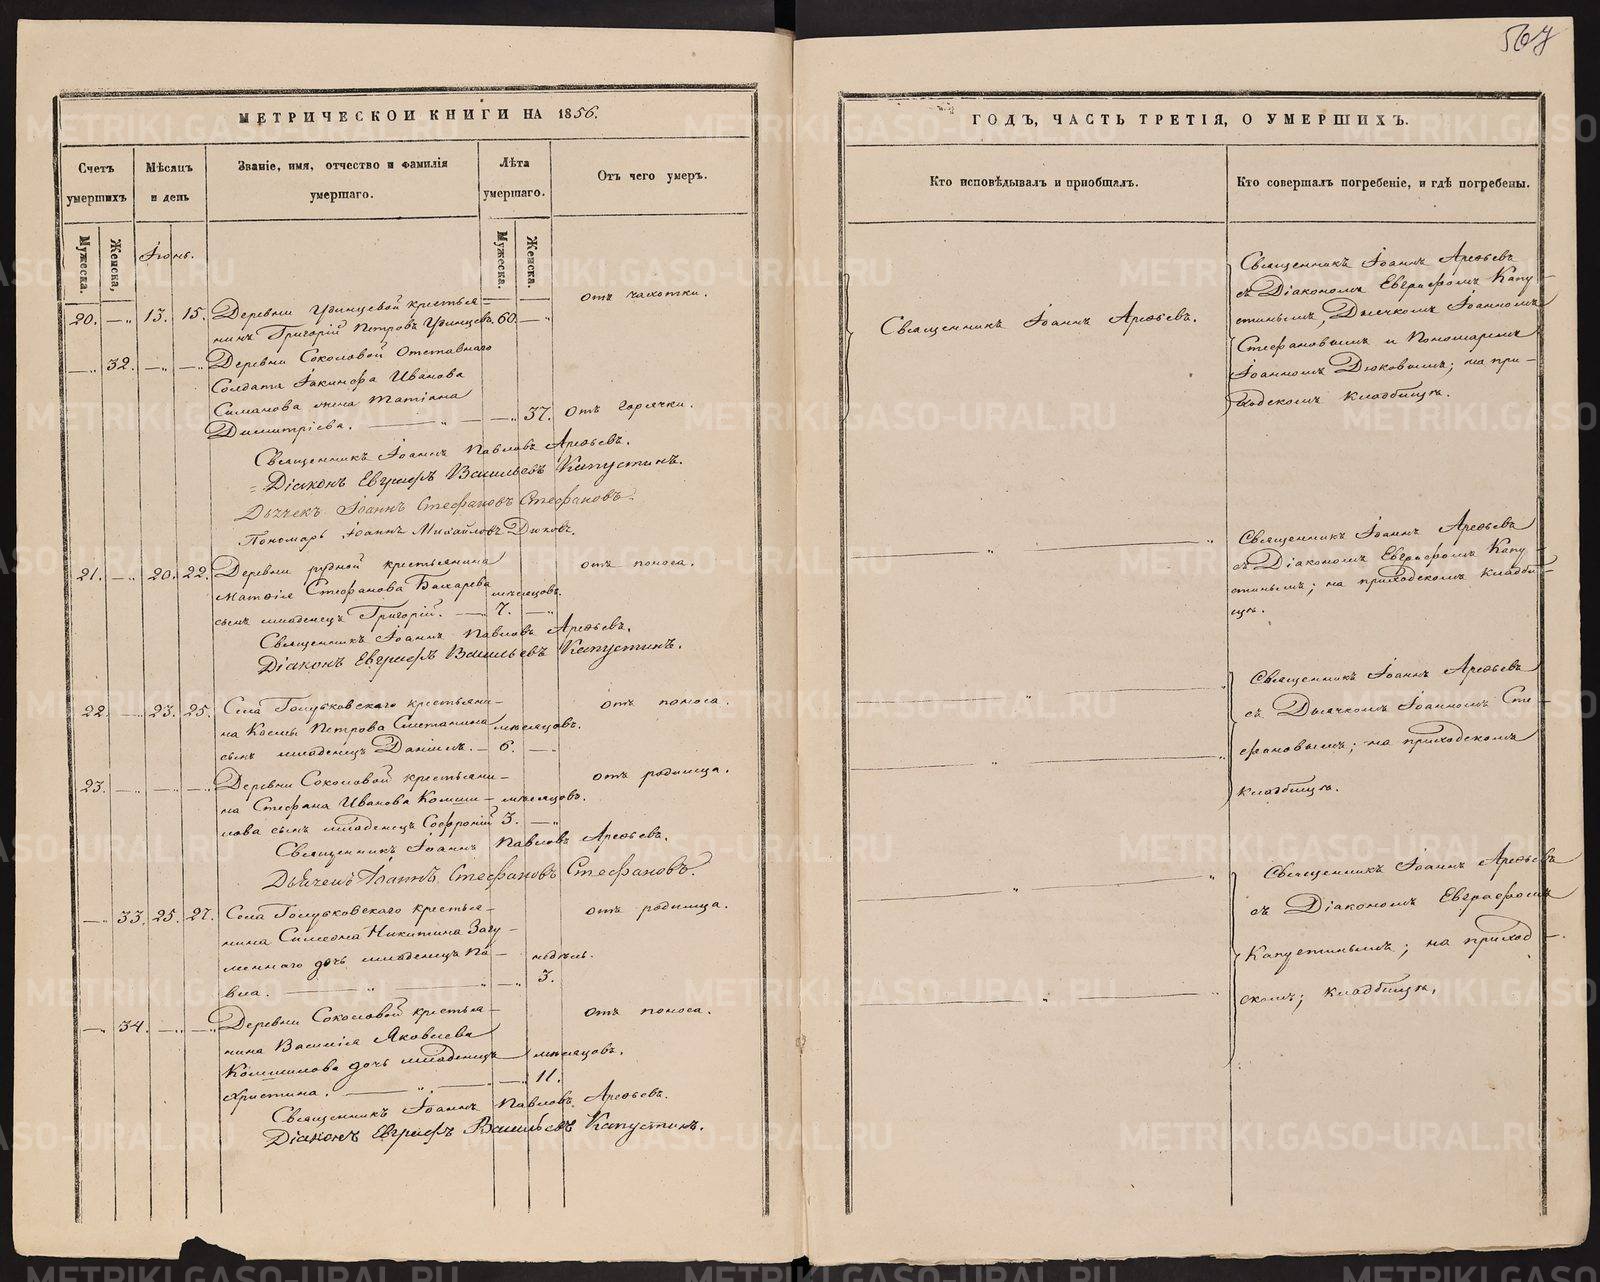 567
МЕТРИЧЕСКОЙ КНИГИ НА 1856.
Счетъ умершихъ
Мужеска.
Женска,
Мѣсяцъ и день
Званіе, имя, отчество и фамилія умершаго.
Лѣта умершаго.
Мужеска.
Женска.
Отъ чего умеръ.
Іюнь.
20. 13. 15. Деревни Удинцевой крестья=
нинъ Григорій Петровъ Удинцевъ 60. отъ чахотки.
32. Деревни Соколовой Отставнаго
Солдата Іакинфа Иванова
Симанова жена Татіана
Димитріева. 37. отъ горячки.
Священникъ Іоаннъ Павловъ Арефьевъ.
Діаконъ Евграфъ Васильевъ Капустинъ.
Дьячекъ Іоаннъ Стефановъ Стефановъ.
Пономарь Іоаннъ Михайловъ Дюковъ.
21. 20. 22. Деревни рудной крестьянина отъ поноса.
Матѳія Стефанова Бахарева мѣсяцовъ.
сынъ младенецъ Григорій. 7.
Священникъ Іоаннъ Павловъ Арефьевъ.
Діаконъ Евграфъ Васильевъ Капустинъ.
22. 23. 25. Села Голубковскаго крестьяни- отъ поноса.
на Косьмы Петрова Сметанина мѣсяцовъ.
сынъ младенецъ Даніилъ. 6.
23. Деревни Соколовой крестьяни- отъ родимца.
на Стефана Иванова Комши- мѣсяцовъ.
лова сынъ младенецъ Софроній 3.
Священникъ Іоаннъ Павловъ Арефьевъ.
Дьячекъ Іоаннъ Стефановъ Стефановъ.
33. 25. 27. Села Голубковскаго крестья- отъ родимца.
нина Симеона Никитина Загу-
меннаго дочь младенецъ Па- недѣль.
вла. 3.
34. Деревни Соколовой крестья- отъ поноса.
нина Василія Яковлева
Комшилова дочь младенецъ мѣсяцовъ.
Христина. 11.
Священникъ Іоаннъ Павловъ Арефьевъ.
Діаконъ Евграфъ Васильевъ Капустинъ.
ГОДЪ, ЧАСТЬ ТРЕТІЯ, О УМЕРШИХЪ.
Кто исповѣдывалъ и пріобщалъ.
Кто совершалъ погребеніе, и гдѣ погребены.
Священникъ Іоаннъ Арефьевъ.
Священникъ Іоаннъ Арефьевъ
съ Діакономъ Евграфомъ Капу-
стинымъ, Дьячкомъ Іоанномъ
Стефановымъ и Пономаремъ
Іоанномъ Дюковымъ; на при-
ходскомъ кладбищѣ.
Священникъ Іоаннъ Арефьевъ
съ Діакономъ Евграфомъ Капу-
стинымъ; на приходскомъ кладби-
щѣ.
Священникъ Іоаннъ Арефьевъ
съ Дьячкомъ Іоанномъ Сте-
фановымъ; на приходскомъ
кладбищѣ.
Священникъ Іоаннъ Арефьевъ
съ Діакономъ Евграфомъ
Капустинымъ; на приход-
скомъ; кладбищѣ.
METRIKI.GASO-URAL.RU